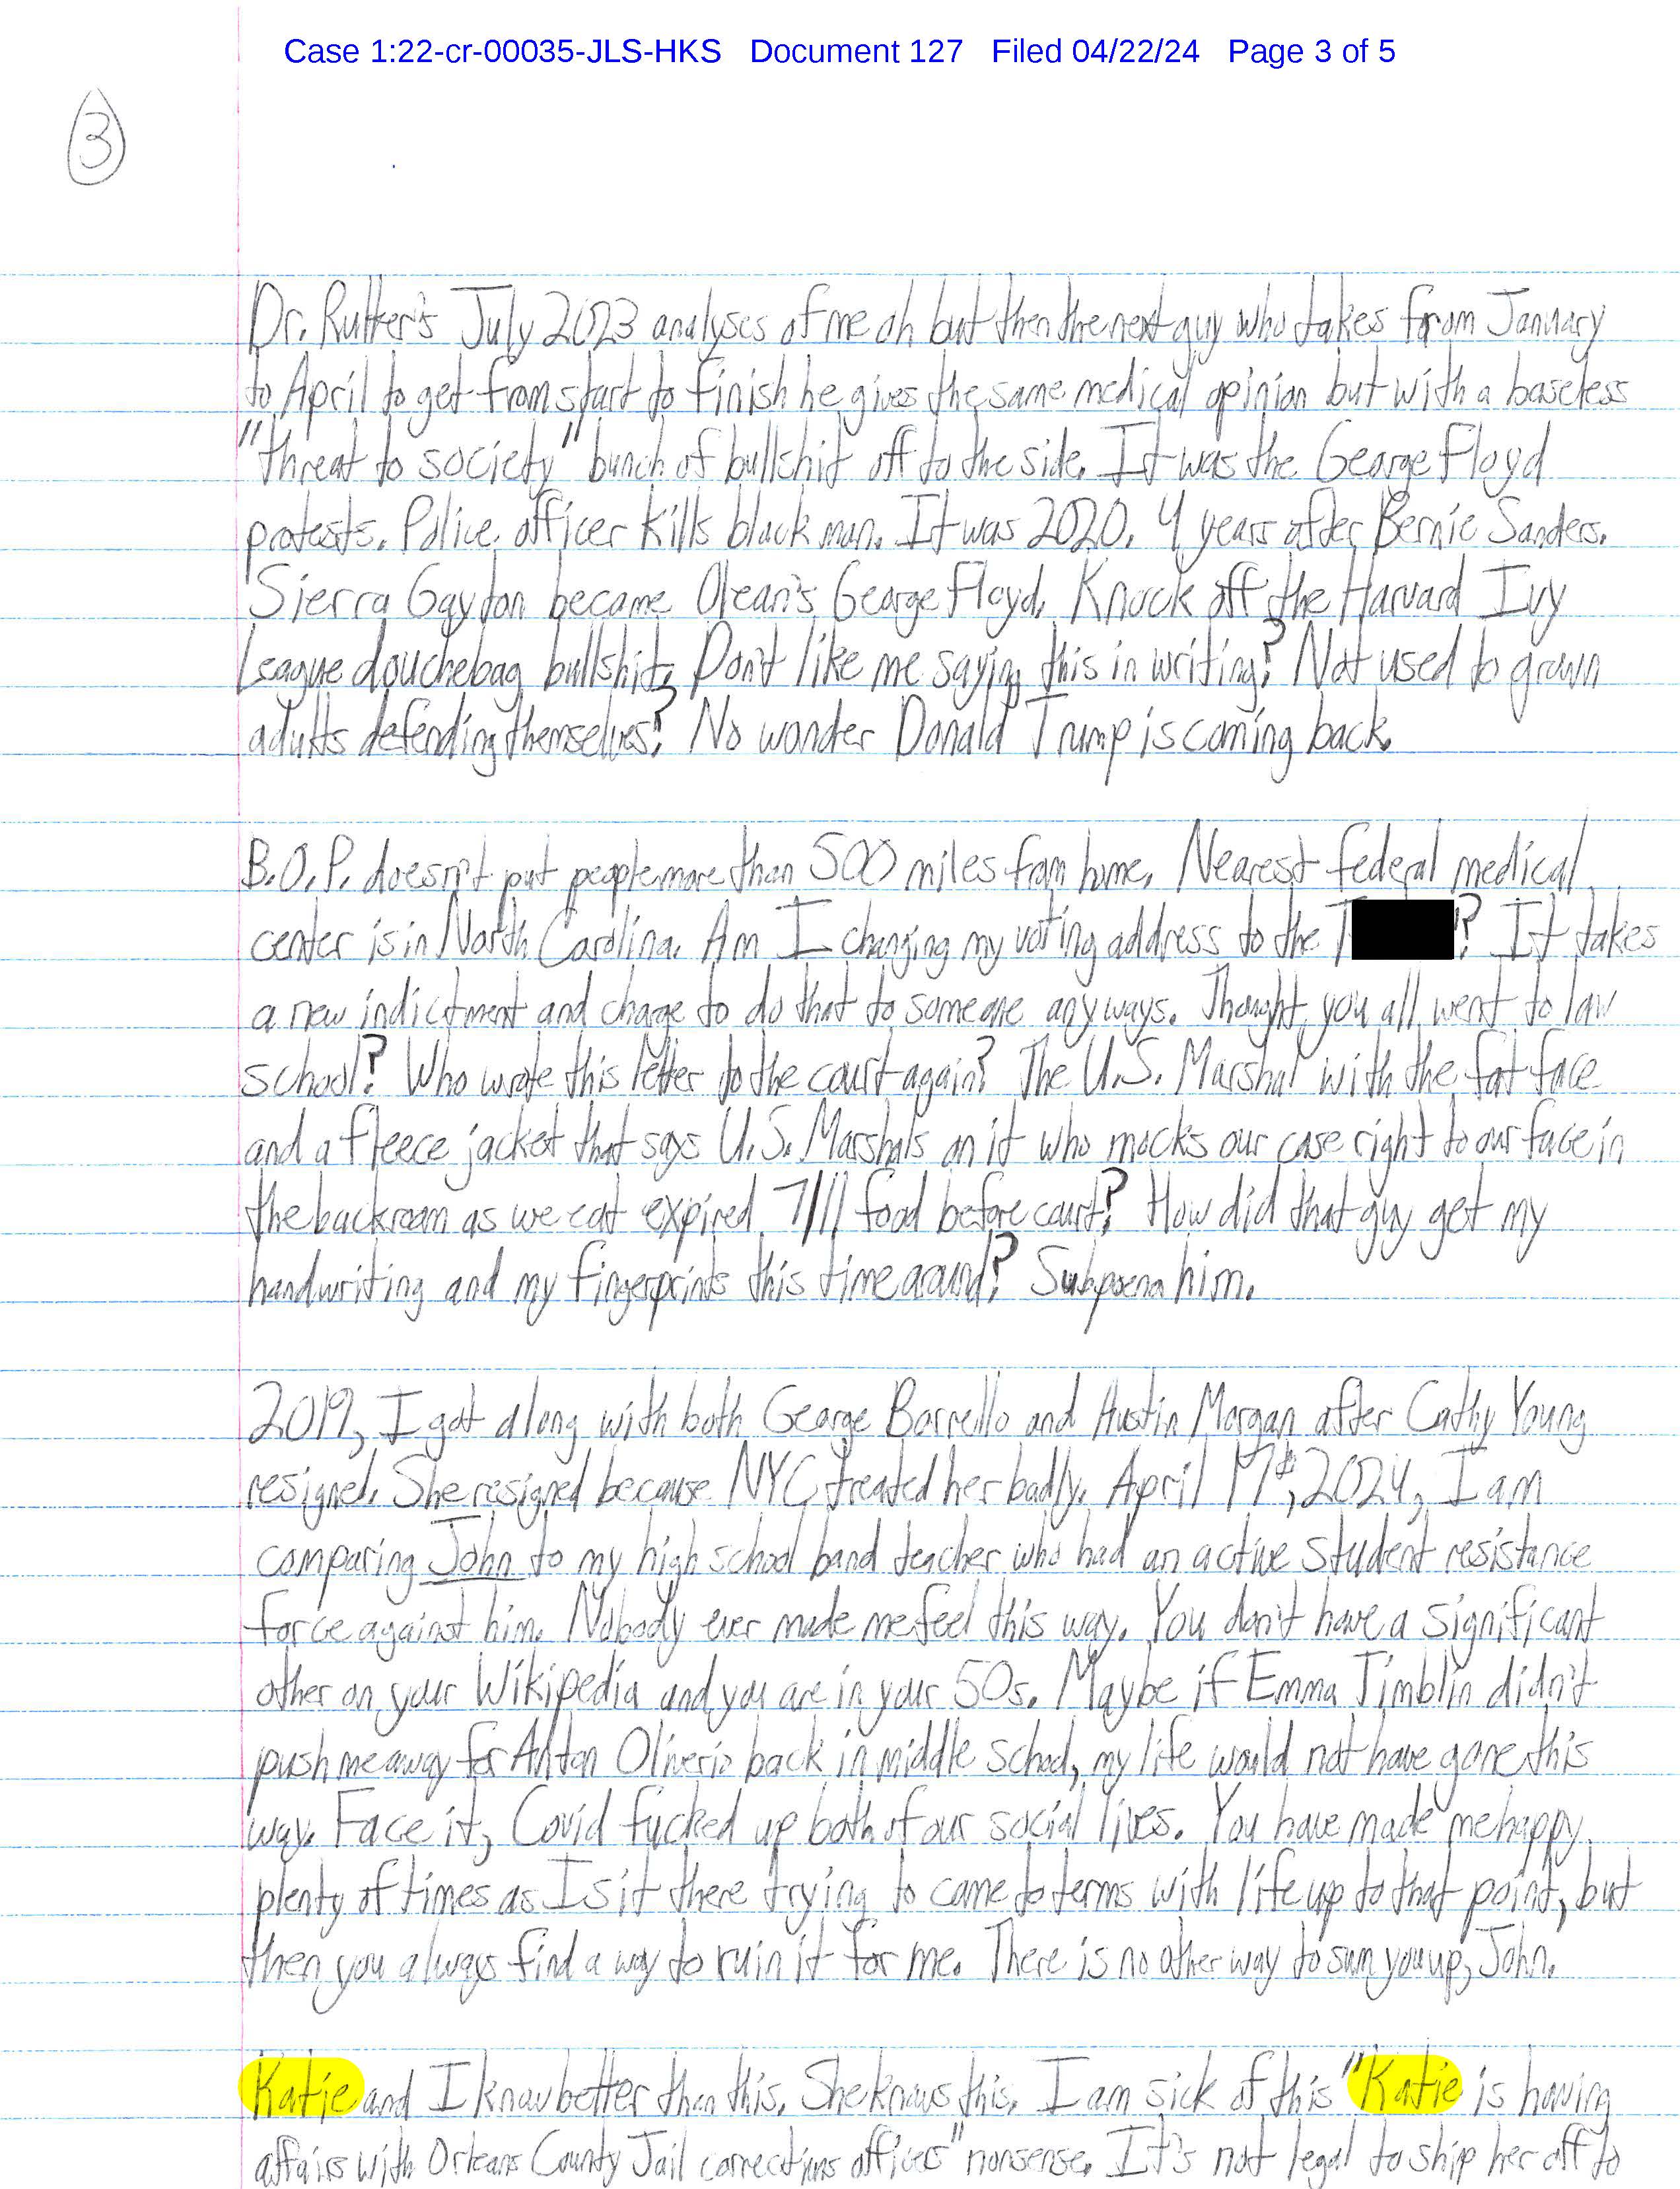 Case 1:22-cr-00035-JLS-HKS Document 127 Filed 04/22/24 Page 3 of 5
3
Dr. Rutter's July 2023 analyses of me oh but then the next guy who takes from January
to April to get from start to finish he gives the same medical opinion but with a baseless
"threat to society" bunch of bullshit off to the side. It was the George Floyd
protests. Police officer kills black man. It was 2020. 4 years after Bernie Sanders.
Sierra Gayton became Olean's George Floyd. Knock off the Harvard Ivy
League douchebag bullshit. Don't like me saying this in writing? Not used to grown
adults defending themselves? No wonder Donald Trump is coming back.
B.O.P. doesn't put people more than 500 miles from home. Nearest federal medical
center is in North Carolina. Am I changing my voting address to the ? It takes
a new indictment and charge to do that to someone anyways. Thought you all went to law
school? Who wrote this letter to the court again? The U.S. Marshal with the fat face
and a fleece jacket that says U.S. Marshals on it who mocks our case right to our face in
the backroom as we eat expired 7/11 food before court? How did that guy get my
handwriting and my fingerprints this time around? Subpoena him.
2019, I got along with both George Borrello and Austin Morgan after Cathy Young
resigned. She resigned because NYC treated her badly. April 17th, 2024, I am
comparing John to my high school band teacher who had an active student resistance
force against him. Nobody ever made me feel this way. You don't have a significant
other on your Wikipedia and you are in your 50s. Maybe if Emma Timblin didn't
push me away for Anton Oliverio back in middle school, my life would not have gone this
way. Face it, Covid fucked up both of our social lives. You have made me happy
plenty of times as I sit there trying to come to terms with life up to that point, but
then you always find a way to ruin it for me. There is no other way to sum you up, John.
Katie and I know better than this. She knows this. I am sick of this "Katie is having
affairs with Orleans County Jail corrections officers" nonsense. It's not legal to ship her off to